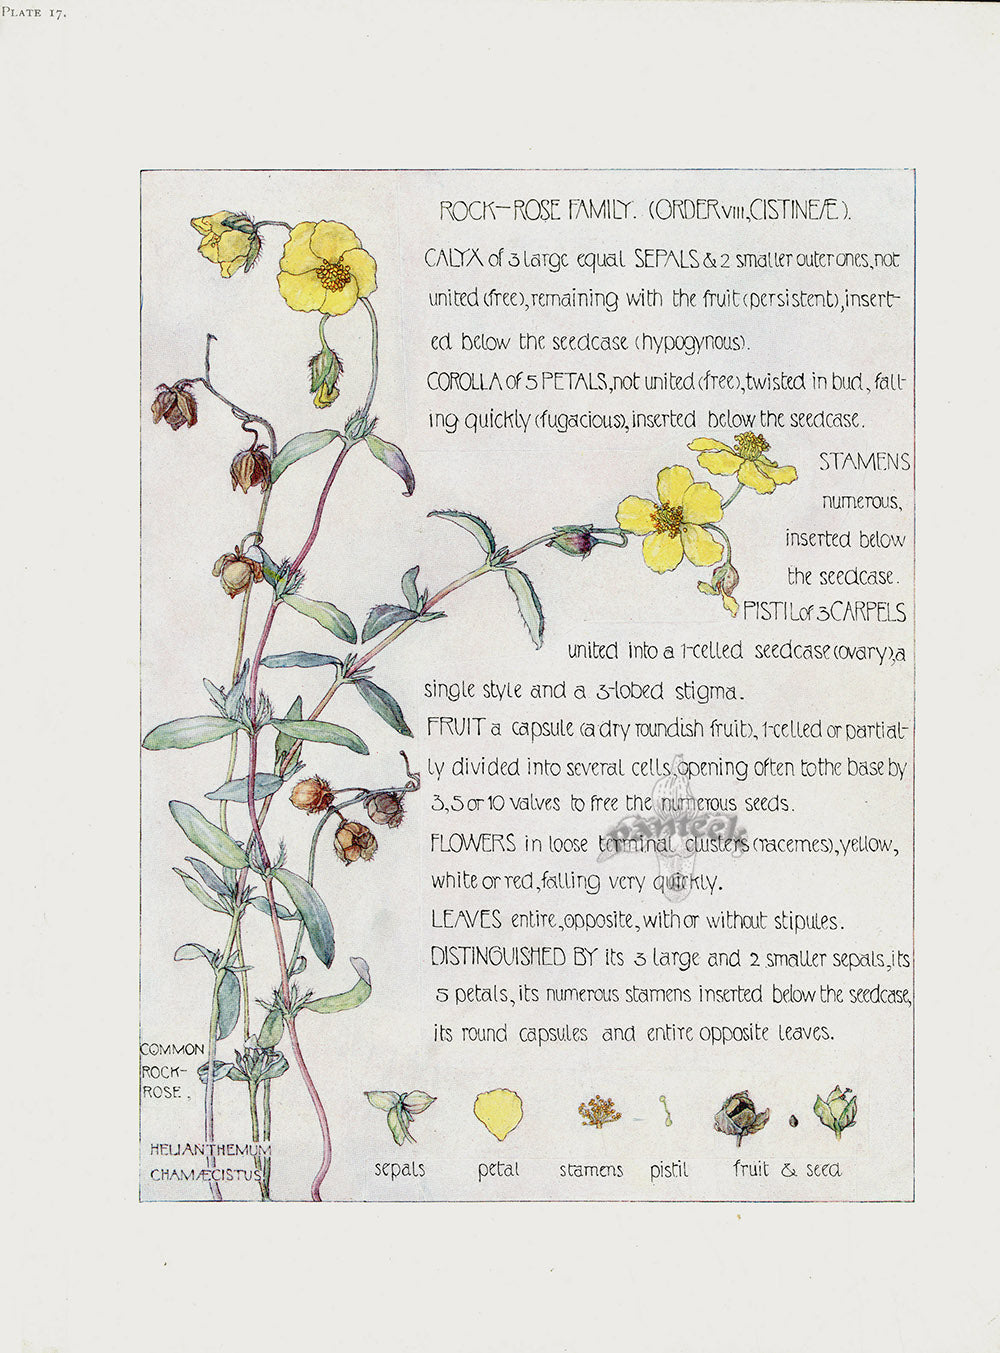 PLATE 17.
ROCK-ROSE FAMILY. (ORDER VIII, CISTINEÆ).
CALYX of 3 large equal SEPALS & 2 smaller outer ones, not
united (free), remaining with the fruit (persistent), insert-
ed below the seedcase (hypogynous).
COROLLA of 5 PETALS, not united (free), twisted in bud, fall-
ing quickly (fugacious), inserted below the seedcase.
STAMENS
numerous,
inserted below
the seedcase.
PISTIL of 3 CARPELS
united into a 1-celled seedcase (ovary), a
single style and a 3-lobed stigma.
FRUIT a capsule (a dry roundish fruit), 1-celled or partial-
ly divided into several cells, opening often to the base by
3, 5 or 10 valves to free the numerous seeds.
FLOWERS in loose terminal clusters (racemes), yellow,
white or red, falling very quickly.
LEAVES entire, opposite, with or without stipules.
DISTINGUISHED BY its 3 large and 2 smaller sepals, its
5 petals, its numerous stamens inserted below the seedcase,
its round capsules and entire opposite leaves.
COMMON
ROCK-
ROSE.
HELIANTHEMUM
CHAMÆCISTUS
sepals petal stamens pistil fruit & seed
panteek